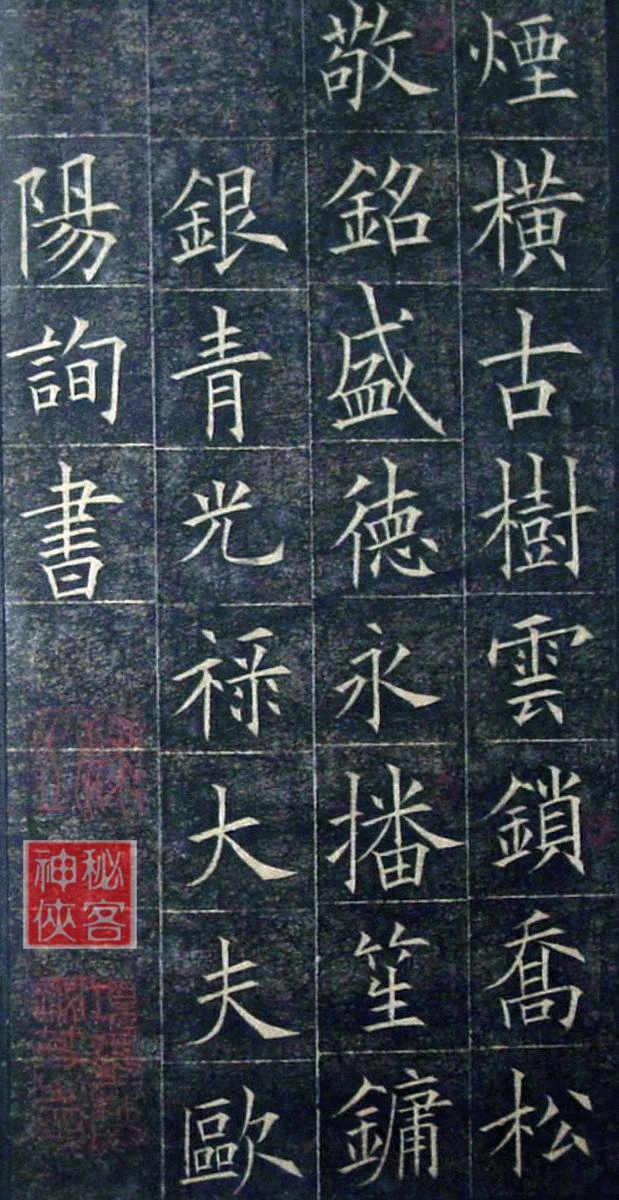 煙橫古樹雲鎖喬松
敬銘盛德永播笙鏞
銀青光祿大夫歐
陽詢書
秘客
神俠